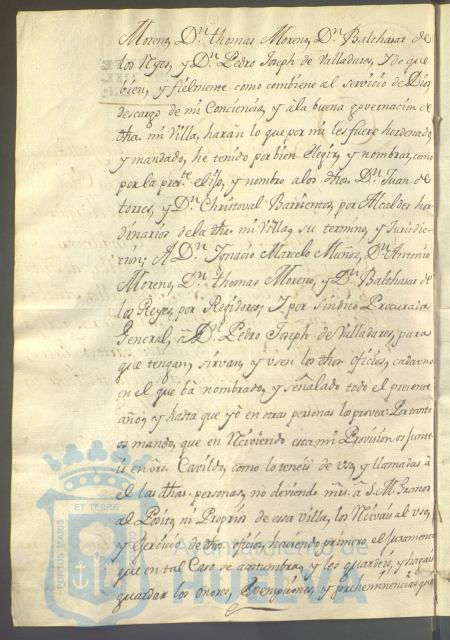 Moreno, Dn. thomas Moreno, Dn. Balthasar de
los Reyes, y Dn. Pedro Joseph de Valladares, Y de que
bien, y fielmente como combiene al servicio de Dios,
descargo de mi Conciencia, y á la buena governacion de
dha. mi Villa, harán lo que por mi les fuere hordenado,
y mandado, he tenido por bien elegir, y nombrar, como
por la preste. elijo, y nombro a los dhos. Dn. Juan de
torres, y Dn. Christoval Barrientos, por Alcaldes hor
dinarios de la dha. mi Villa, su termino, y Jurisdic
cion; A Dn. Ignacio Marcelo Muñoz, Dn. Antonio
Moreno, Dn. thomas Moreno, y Dn. Balthasar de
los Reyes, por Regidores; Y por Sindico Procurador
General, á Dn. Pedro Joseph de Valladares, para
que tengan, sirvan, y usen los dhos oficios, cada uno
en el que bá nombrado, y señalado todo el presente
año, y hasta que yo en otras personas los provea: Por tanto
os mando, que en reciviendo esta mi Provision os junte
is en vro. Cavildo, como lo teneis de uso, y llamadas á
él las dhas. personas, no deviendo mrs. á S. M. Granos
al Posito, ni Proprios de essa villa, los recivais al uso,
y exercicio de dhos. oficios, haciendo primero el juramento
que en tal Caso se acostumbra, y les guardeis, y hagais
guardar los onores, exempciones, y prehemminencias que
ET TERRÆ
PORTUS MARIS
Ayuntamiento de
HUELVA